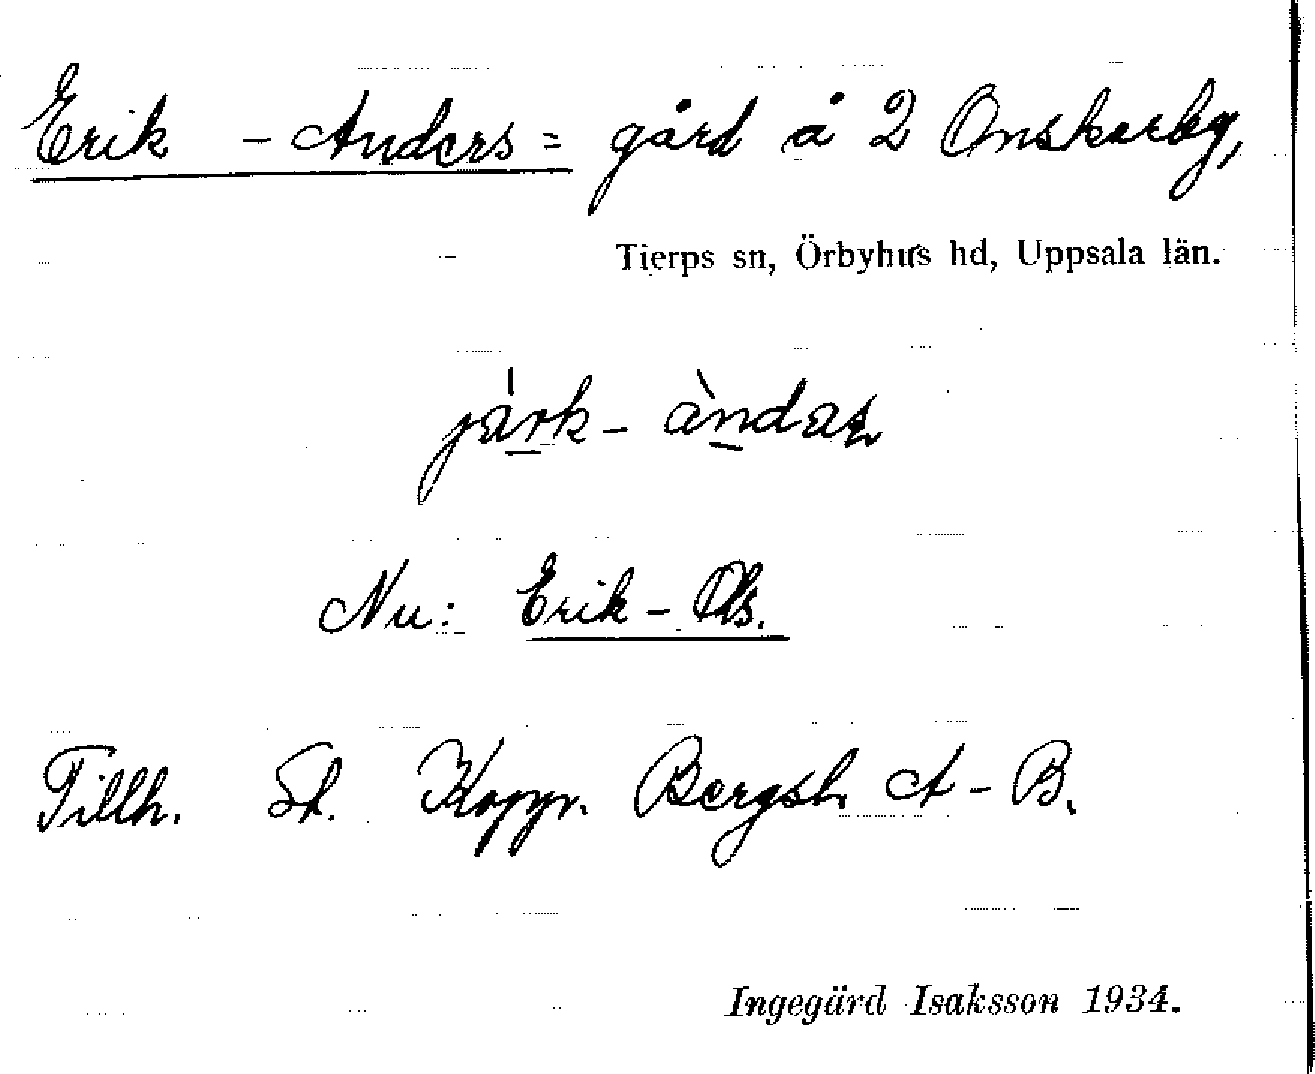 Erik - Anders = gård å 2 Onskarby,
Tierps sn, Örbyhus hd, Uppsala län.
järk - àndaʂ
Nu: Erik - Ols.
Tillh. St. Koppr. Bergsl. A-B.
Ingegärd Isaksson 1934.